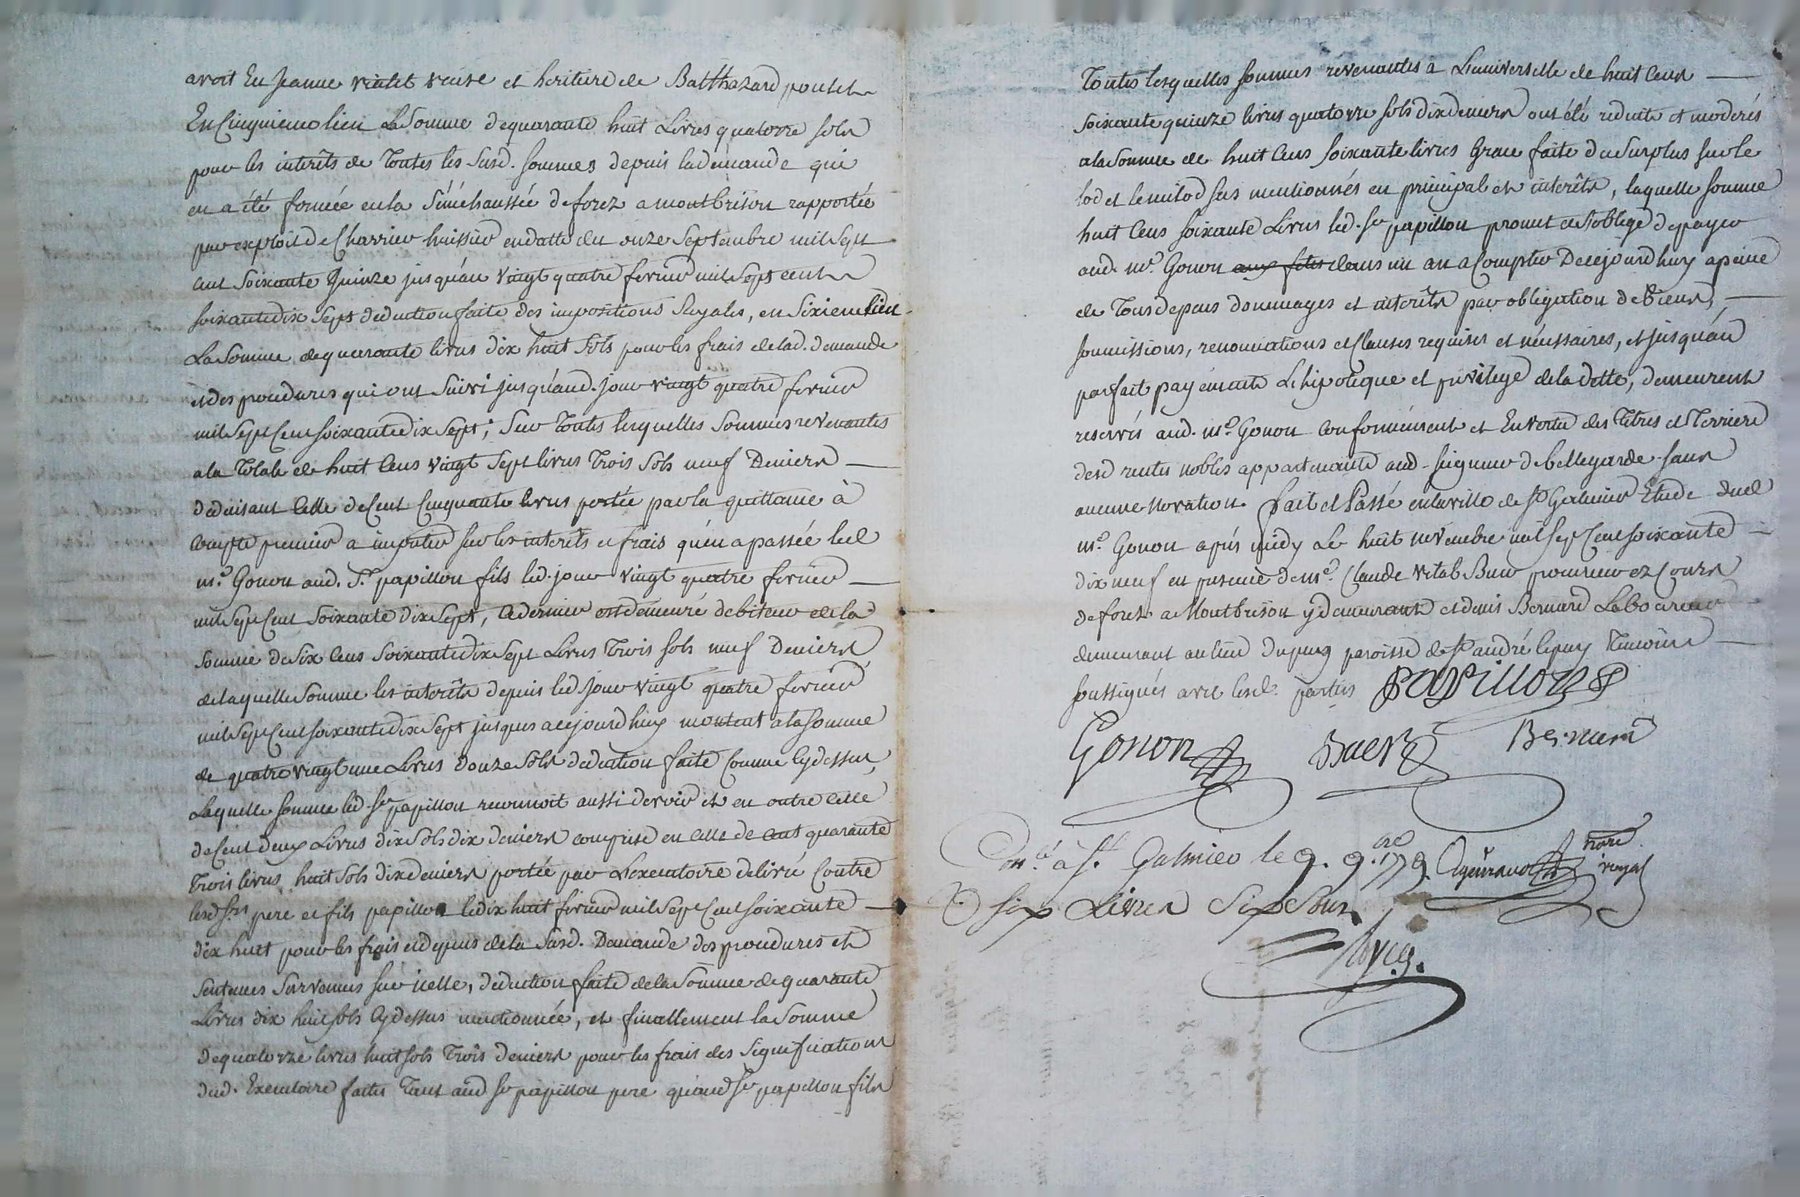 avoit Eu Jeanne vialet veuve et heritiere de Balthazard poutet
En Cinquieme lieu La Somme de quarante huit Livres quatorze sols
pour les interêts de Toutes les Susd. sommes depuis la demande qui
en a été formée en la Sénéchaussée de forez a montbrison rapportée
par exploit de Charrier huissier en datte du onze Septembre mil Sept
cent Soixante Quinze jusqu'au vingt quatre fevrier mil Sept cent
soixante dix Sept deduction faite des impositions Royales, en Sixieme lieu
La Somme de quarante livres dix huit Sols pour les frais de lad. demande
et des procedures qui ont Suivi jusqu'aud. jour vingt quatre fevrier
mil Sept Cent soixante dix Sept; Sur Toutes lesquelles Sommes revenantes
a la Totale de huit Cens vingt Sept livres Trois Sols neuf Deniers
Deduisant Celle de Cent Cinquante livres portée par la quittance à
Compte premier a imputer sur les interets et frais qu'en a passée led
me. Gonon aud. Sr. papillon fils led. jour vingt quatre fevrier
mil Sept Cent Soixante dix Sept, Ce dernier est demeuré debiteur de la
Somme de Six Cens Soixante dix Sept Livres Trois Sols neuf Deniers
de laquelle Somme les interêts depuis led jour vingt quatre fevrier
mil Sept Cent soixante dix Sept jusques a cejourd'huy montent a la Somme
de quatre vingt une Livres Douze Sols deduction faite Comme Cy dessus,
Laquelle Somme led. Sr papillon reconnoit aussi devoir et en outre Celle
de Cent deux Livres dix Sols dix deniers comprise en Celle de cent quarante
Trois livres huit Sols dix deniers portée par L'executoire delivré Contre
lesd Srs pere et fils papillon le dix huit fevrier mil Sept Cent soixante
dix huit pour les frais et depens de la Susd. Demande des procedures et
Sentences Survenues sur icelle, deduction faite de la Somme de quarante
Livres dix huit sols Cy dessus mentionnée, et finallement la Somme
de quatorze livres huit sols Trois deniers pour les frais des Significations
dud. Executoire faites Tant aud Sr papillon pere qu'aud Sr papillon fils
Toutes lesquelles sommes revenantes a L'universelle de huit Cens
soixante quinze livres quatorze sols dix deniers ont été reduites et moderés
a la Somme de huit Cens soixante livres Grace faite du Surplus sur le
lod et le milod sus mentionnés en principal et interêts, laquelle somme
huit Cens soixante Livres led. Sr papillon promet et s'oblige de payer
aud. me. Gonon aux fetes dans un an a Compter De cejourd'huy a peine
de Tous depens dommages et interêts par obligation de Biens,
soumissions, renonciations et Clauses requises et nécessaires, et jusqu'au
parfait payement L'hipoteque et privilege de la dette, demeurent
reservés aud. me. Gonon conformément et En vertu des Titres et Terriers
desd rentes nobles appartenante aud. seigneur de bellegarde sans
aucune Novation. fait et Passé en la ville de St. Galmier Etude dud
me. Gonon après midy Le huit novembre mil sept Cent soixante
dix neuf en presence de me. Claude vital Buer procureur ez Cours
de forez a Montbrison y demeurant et denis Bernard Laboureur
demeurant au lieu du puy paroisse de St andré le puy Temoins
soussignés avec lesd. parties PAPILLON
Gonon Buer Bernard
Con.lé à St. Galmier le 9. 9.bre 1779.
R. six Livres Six Sous
nore royal